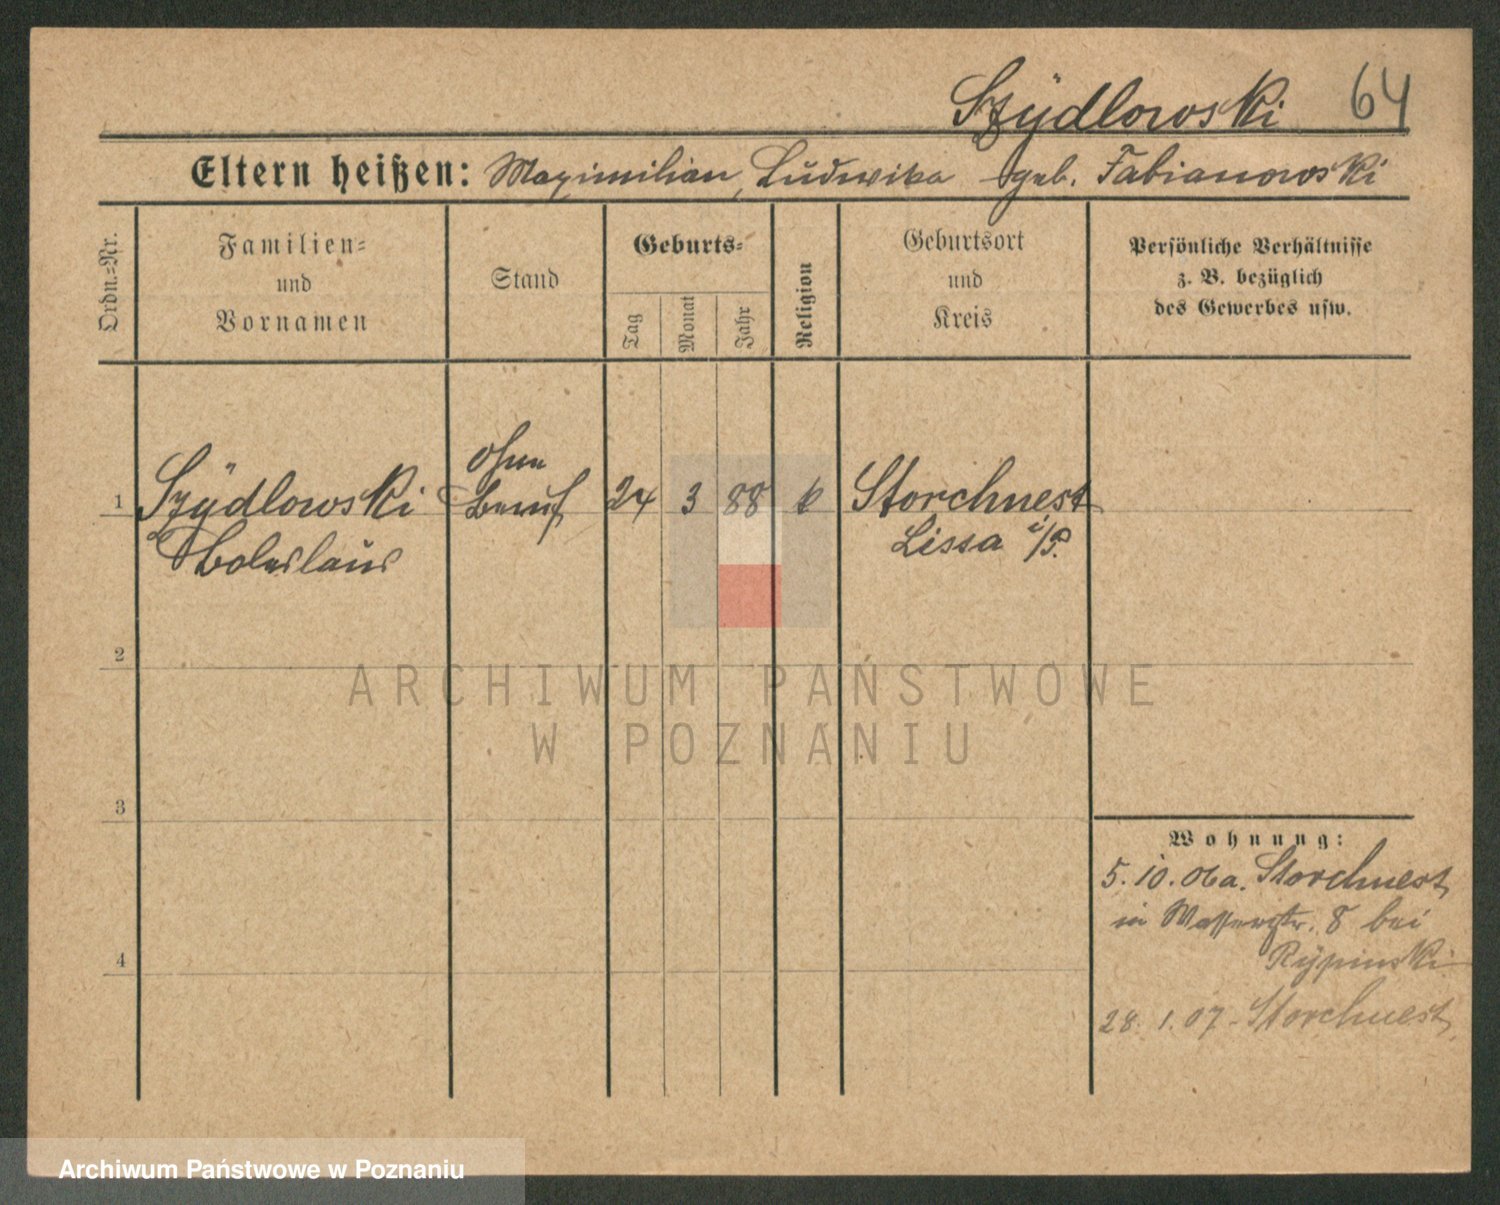 Szÿdlowski 64
Eltern heißen: Maximilian, Ludwika geb. Fabianowski
Ordn.-Nr.
Familien-
und
Vornamen
Stand
Geburts-
Tag
Monat
Jahr
Religion
Geburtsort
und
Kreis
Persönliche Verhältnisse
z. B. bezüglich
des Gewerbes usw.
1
Szÿdlowski
Boleslaus
ohne
Beruf
24 3 88 k
Storchnest
Lissa i/P.
2
ARCHIWUM PAŃSTWOWE
W POZNANIU
3
Wohnung:
5.10.06 a. Storchnest
in Wasserstr. 8 bei
Rÿpinski
4
28.1.07 - Storchnest
Archiwum Państwowe w Poznaniu